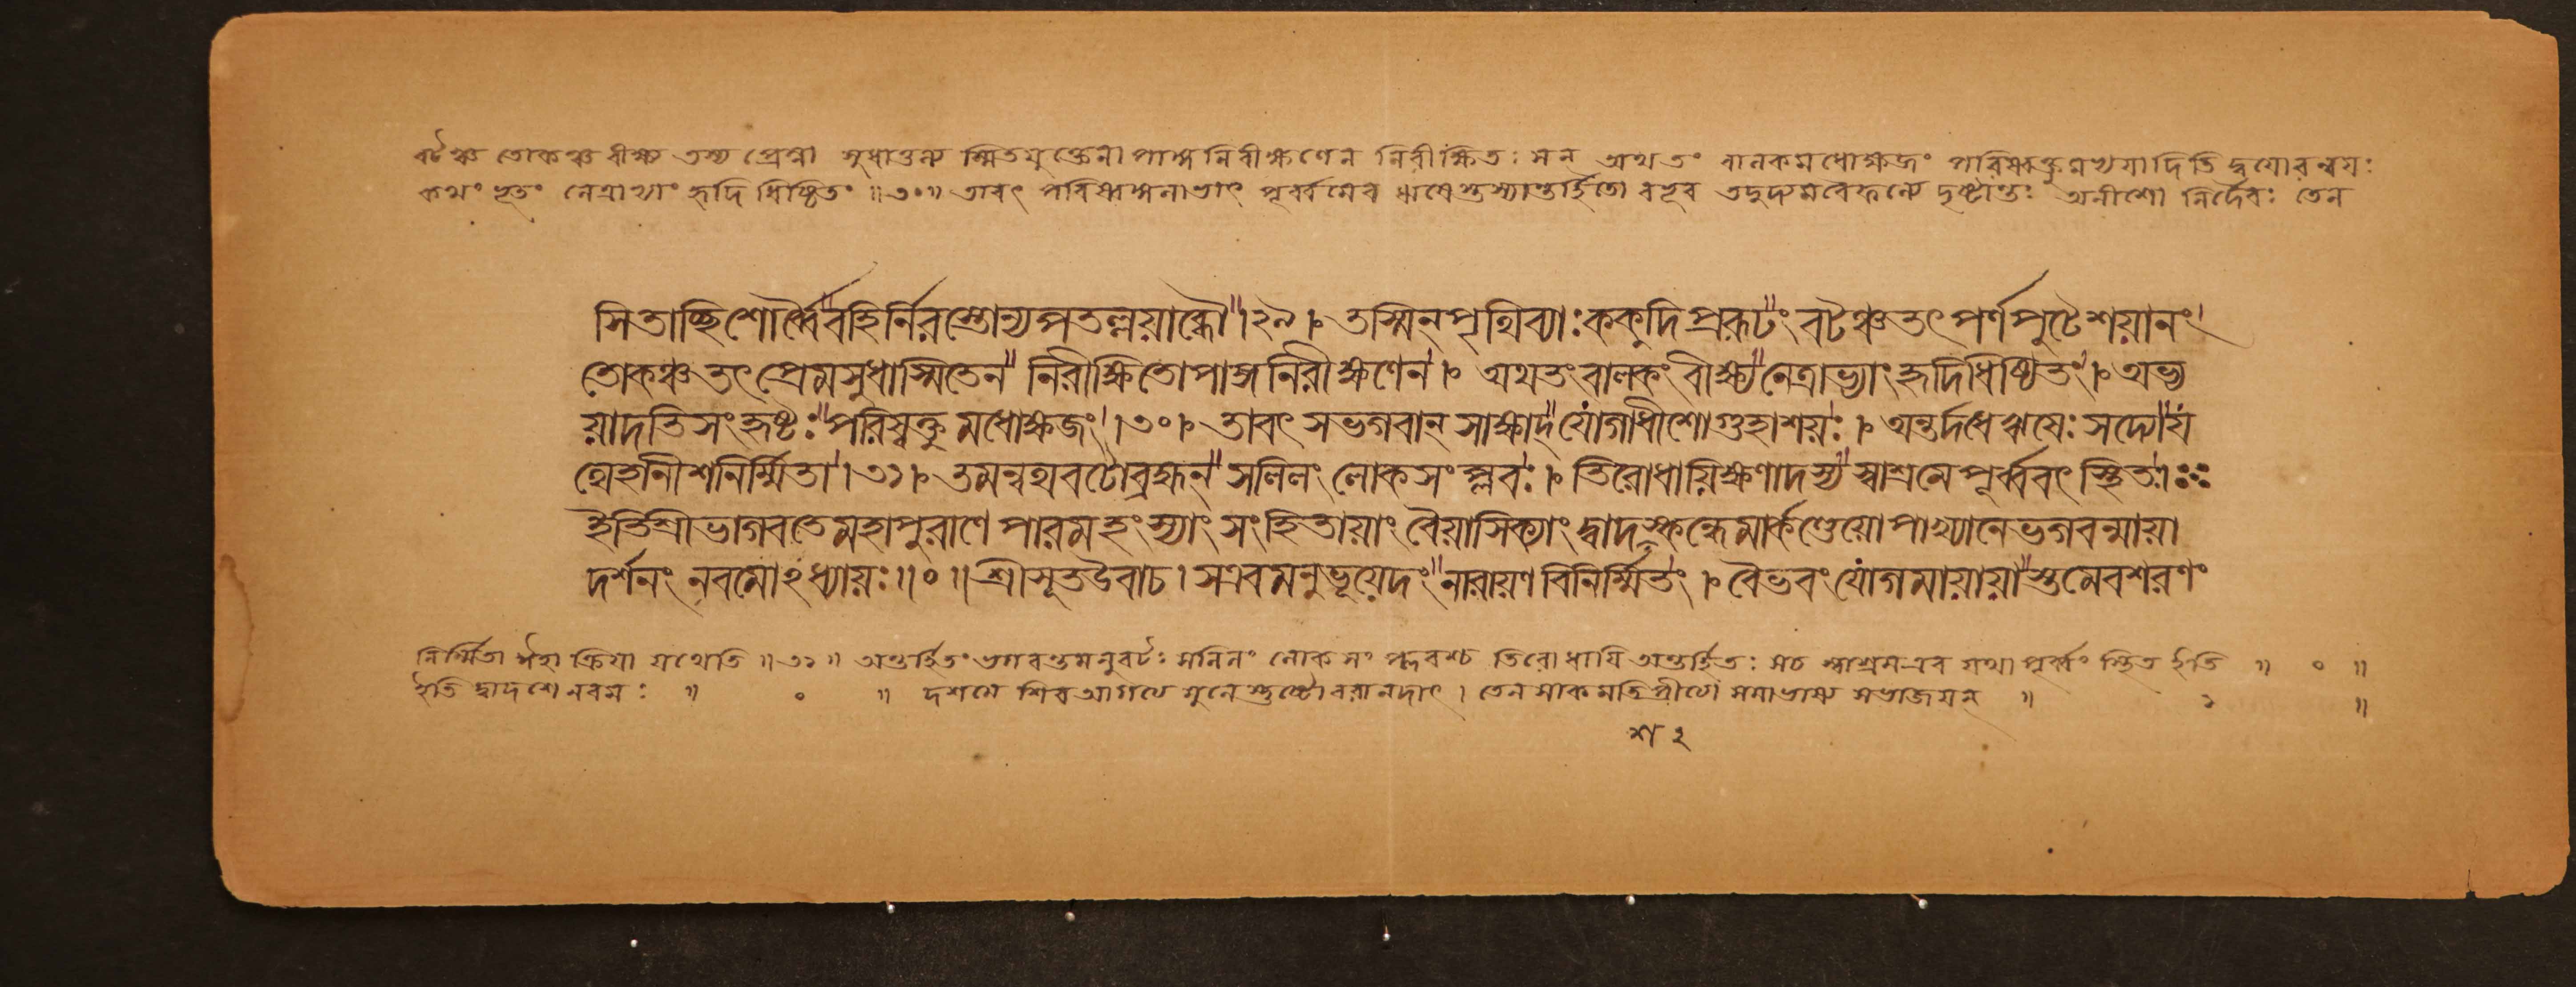 বটঞ্চ তোকঞ্চ বীক্ষ্য তস্য প্রেম্না সুধাতুল্য স্মিতযুক্তেনাপাঙ্গ নিরীক্ষণেন নিরীক্ষিতঃ সন্ অথ তং বালকমধোক্ষজং পরিষ্বক্তুমভ্যয়াদিতি দ্বয়োরন্বয়ঃ
কথং ভূতং নেত্রাভ্যাং হৃদি ধিষ্ঠিতং ॥৩০॥ তাবৎ পরিষ্বঙ্গ পূর্ব্বমেব ঋষেস্তস্যান্তর্হিতো বভূব দৃষ্টান্তঃ অনীশো নির্দৈবঃ তেন
সিতাচ্ছিশোর্ব্বৈ" বহির্নিরস্তোন্যপতল্লয়াব্ধৌ" ।২৯। তস্মিন্ পৃথিব্যাঃ ককুদি প্ররূঢং" বটঞ্চ তৎ পর্ণপুটে শয়ানং'
তোকঞ্চ তৎ প্রেমসুধাস্মিতেন" নিরীক্ষিতোপাঙ্গনিরীক্ষণেন' । অথ তং বালকং বীক্ষ্য" নেত্রাভ্যাং হৃদিধিষ্ঠিতং' । অভ্য
য়াদতিসংহৃষ্টঃ" পরিষ্বক্তুমধোক্ষজং' ।৩০। তাবৎ সভগবান্ সাক্ষাদ্" যোগাধীশো গুহাশয়ঃ' । অন্তর্দধে ঋষেঃ সদ্যো" য
থেহানীশনির্ম্মিতা' ।৩১। তমন্বথ বটো ব্রহ্মন্" সলিলং লোকসংপ্লবঃ' । তিরোধায়ি ক্ষণাদস্য" স্বাশ্রমে পূর্ব্ববৎ স্থিতঃ' ঃ
ইতি শ্রীভাগবতে মহাপুরাণে পারমহংস্যাং সংহিতায়াং বৈয়াসিক্যাং দ্বাদস্কন্ধে মার্কণ্ডেয়োপাখ্যানে ভগবন্মায়া
দর্শনং নবমোঽধ্যায়ঃ ॥০॥ শ্রীসূত উবাচ । স এবমনুভূয়েদং" নারায়ণবিনির্ম্মিতং' । বৈভবং যোগমায়ায়া" স্তমেব শরণং
নির্ম্মিতা ঈহা ক্রিয়া যথেতি ॥৩১॥ অন্তর্হিতং ভগবন্তমনু বটঃ সলিলং লোক সং প্লবশ্চ তিরোধায়ি অন্তর্হিতঃ স্বাশ্রম এব যথা পূর্ব্বং স্থিত ইতি ॥ ০ ॥
ইতি দ্বাদশে নবমঃ ॥ ০ ॥ দশমে শিব আগত্য মুনে স্তুষ্টো বরানদাৎ । তেন সাকমতিপ্রীত্যা সমাভাষ্য সভাজয়ন্ ॥ ১ ॥
শ ২